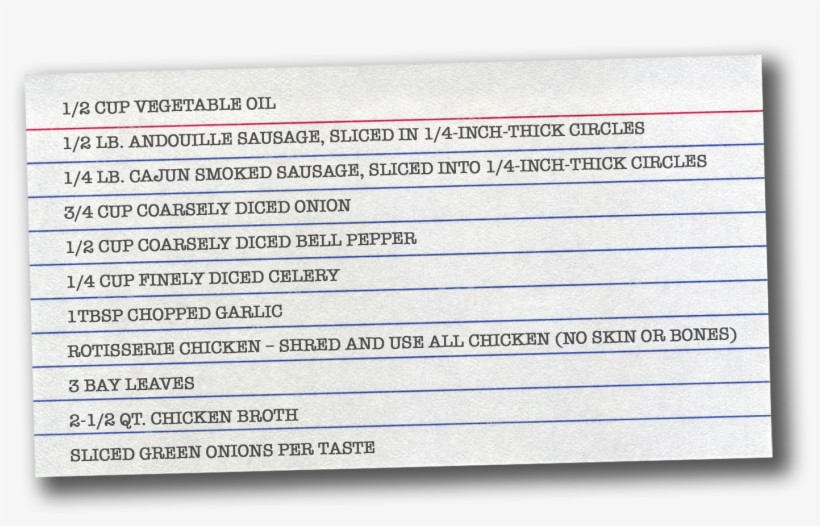 1/2 CUP VEGETABLE OIL
1/2 LB. ANDOUILLE SAUSAGE, SLICED IN 1/4-INCH-THICK CIRCLES
1/4 LB. CAJUN SMOKED SAUSAGE, SLICED INTO 1/4-INCH-THICK CIRCLES
3/4 CUP COARSELY DICED ONION
1/2 CUP COARSELY DICED BELL PEPPER
1/4 CUP FINELY DICED CELERY
1TBSP CHOPPED GARLIC
ROTISSERIE CHICKEN – SHRED AND USE ALL CHICKEN (NO SKIN OR BONES)
3 BAY LEAVES
2-1/2 QT. CHICKEN BROTH
SLICED GREEN ONIONS PER TASTE